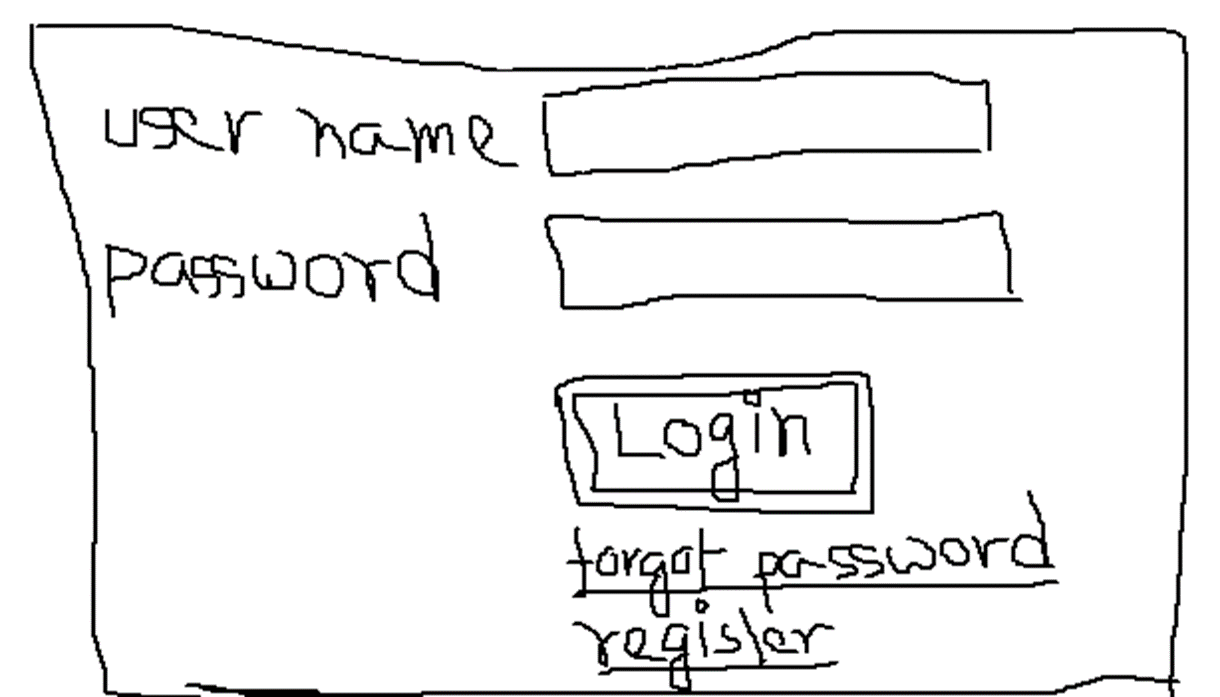 user name
password
Login
forgot password
register